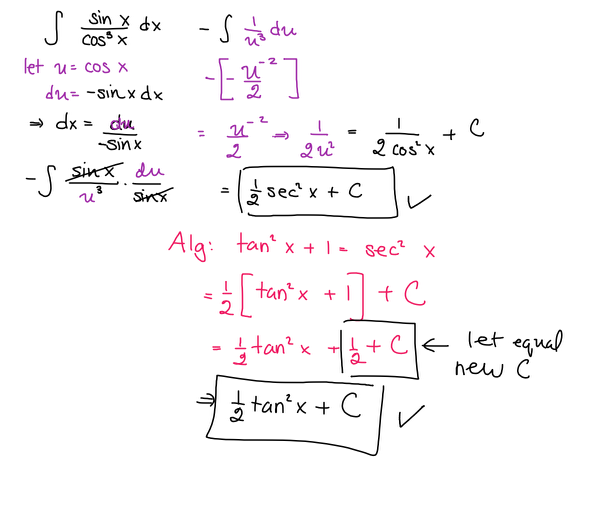 ∫ sin x / cos³ x dx
let u = cos x
du = -sin x dx
⇒ dx = du / -sin x
- ∫ sin x / u³ · du / sin x
- ∫ 1 / u³ du
- [ - u⁻² / 2 ]
= u⁻² / 2 ⇒ 1 / 2u² = 1 / 2 cos² x + C
= 1/2 sec² x + C ✓
Alg: tan² x + 1 = sec² x
= 1/2 [ tan² x + 1 ] + C
= 1/2 tan² x + 1/2 + C ← let equal
new C
⇒ 1/2 tan² x + C ✓